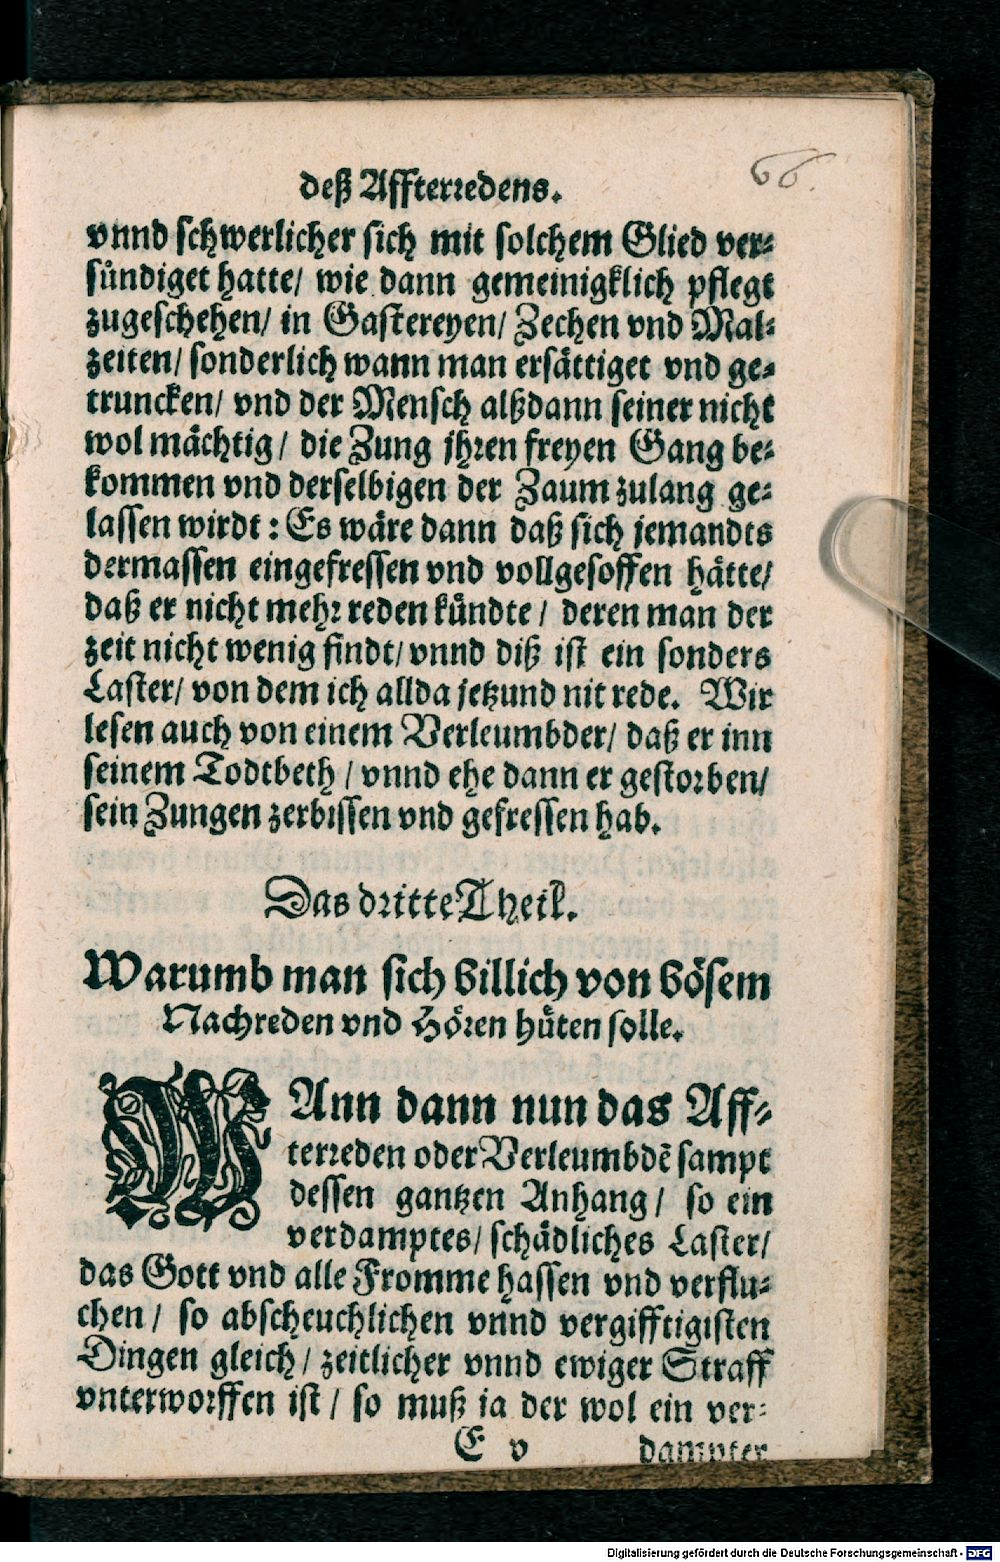 deß Affterredens.
66.
vnnd schwerlicher sich mit solchem Glied ver⸗
sündiget hatte/ wie dann gemeinigklich pflegt
zugeschehen/ in Gastereyen/ Zechen vnd Mal⸗
zeiten/ sonderlich wann man ersättiget vnd ge⸗
truncken/ vnd der Mensch alßdann seiner nicht
wol mächtig/ die Zung jhren freyen Gang be⸗
kommen vnd derselbigen der Zaum zulang ge⸗
lassen wirdt: Es wäre dann daß sich jemandts
dermassen eingefressen vnd vollgesoffen hätte/
daß er nicht mehr reden kündte/ deren man der
zeit nicht wenig findt/ vnnd diß ist ein sonders
Laster/ von dem ich allda jetzund nit rede. Wir
lesen auch von einem Verleumbder/ daß er inn
seinem Todtbeth/ vnnd ehe dann er gestorben/
sein Zungen zerbissen vnd gefressen hab.
Das dritte Theil.
Warumb man sich billich von bösem
Nachreden vnd Hören hüten solle.
WAnn dann nun das Aff⸗
terreden oder Verleumbdẽ sampt
dessen gantzen Anhang/ so ein
verdamptes/ schädliches Laster/
das Gott vnd alle Fromme hassen vnd verflu⸗
chen/ so abscheuchlichen vnnd vergifftigisten
Dingen gleich/ zeitlicher vnnd ewiger Straff
vnterworffen ist/ so muß ja der wol ein ver⸗
E v dampter
Digitalisierung gefördert durch die Deutsche Forschungsgemeinschaft - DFG